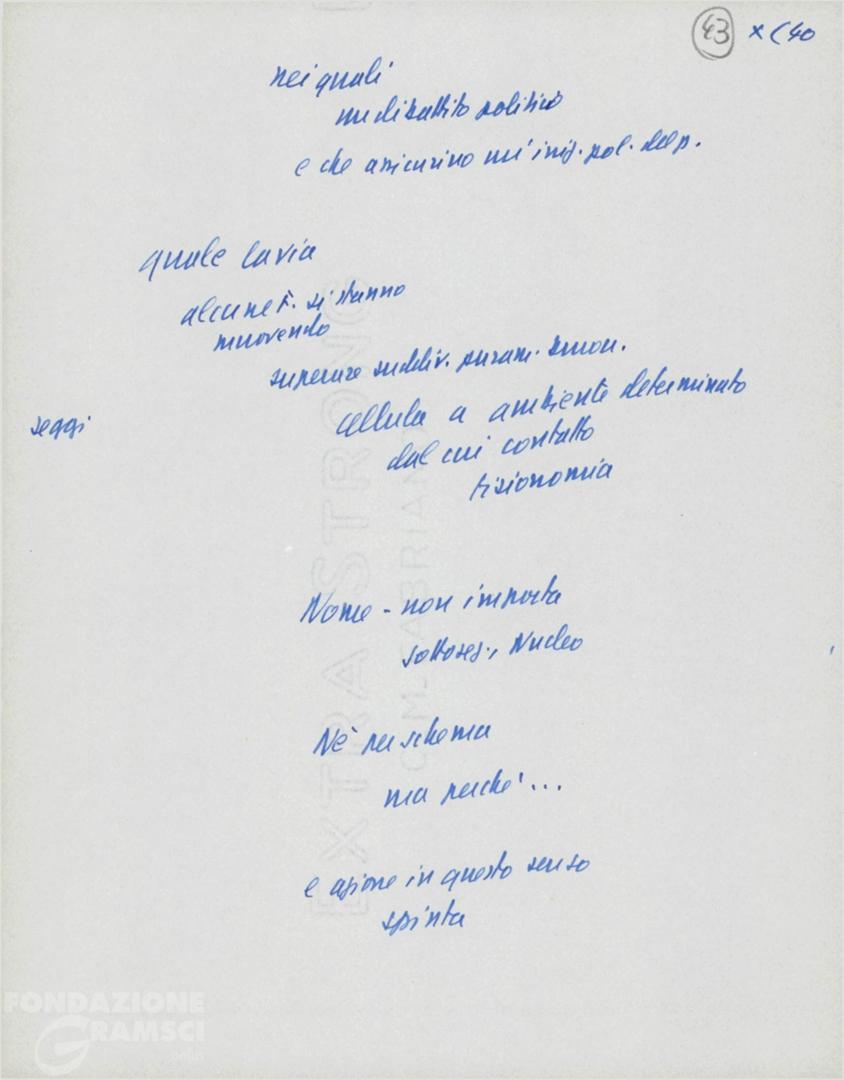 43 x (40
nei quali
un dibattito politico
e che assicurino un'iniz. pol. del p.
quale la via
alcune F. si stanno
muovendo
superare suddiv. puram.
seggi
cellula a ambiente determinato
dal cui contatto
fisionomia
Nome - non importa
sottosez., Nucleo
Nè per schema
ma perchè...
e azione in questo senso
spinta
EXTRA STRONG
FABRIANO
FONDAZIONE
GRAMSCI